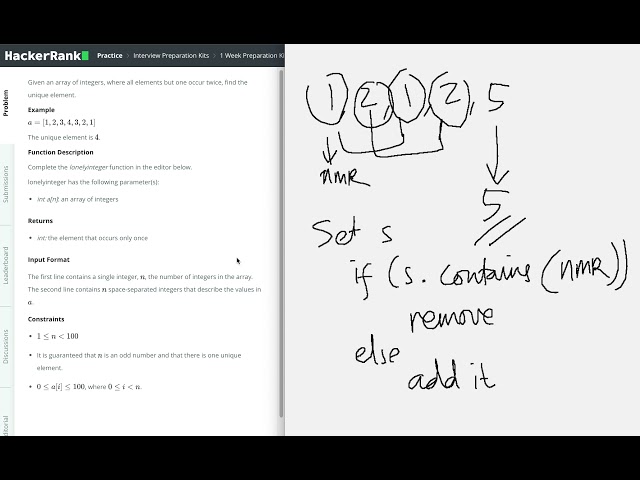 HackerRank Practice > Interview Preparation Kits > 1 Week Preparation Ki
Problem
Submissions
Leaderboard
Discussions
itorial
Given an array of integers, where all elements but one occur twice, find the
unique element.
Example
a = [1, 2, 3, 4, 3, 2, 1]
The unique element is 4.
Function Description
Complete the lonelyinteger function in the editor below.
lonelyinteger has the following parameter(s):
• int a[n]: an array of integers
Returns
• int: the element that occurs only once
Input Format
The first line contains a single integer, n, the number of integers in the array.
The second line contains n space-separated integers that describe the values in
a.
Constraints
• 1 ≤ n < 100
• It is guaranteed that n is an odd number and that there is one unique
element.
• 0 ≤ a[i] ≤ 100, where 0 ≤ i < n.
1, 2, 1, 2, 5
nmR
5
Set s
if (s. contains (nmR))
remove
else
add it